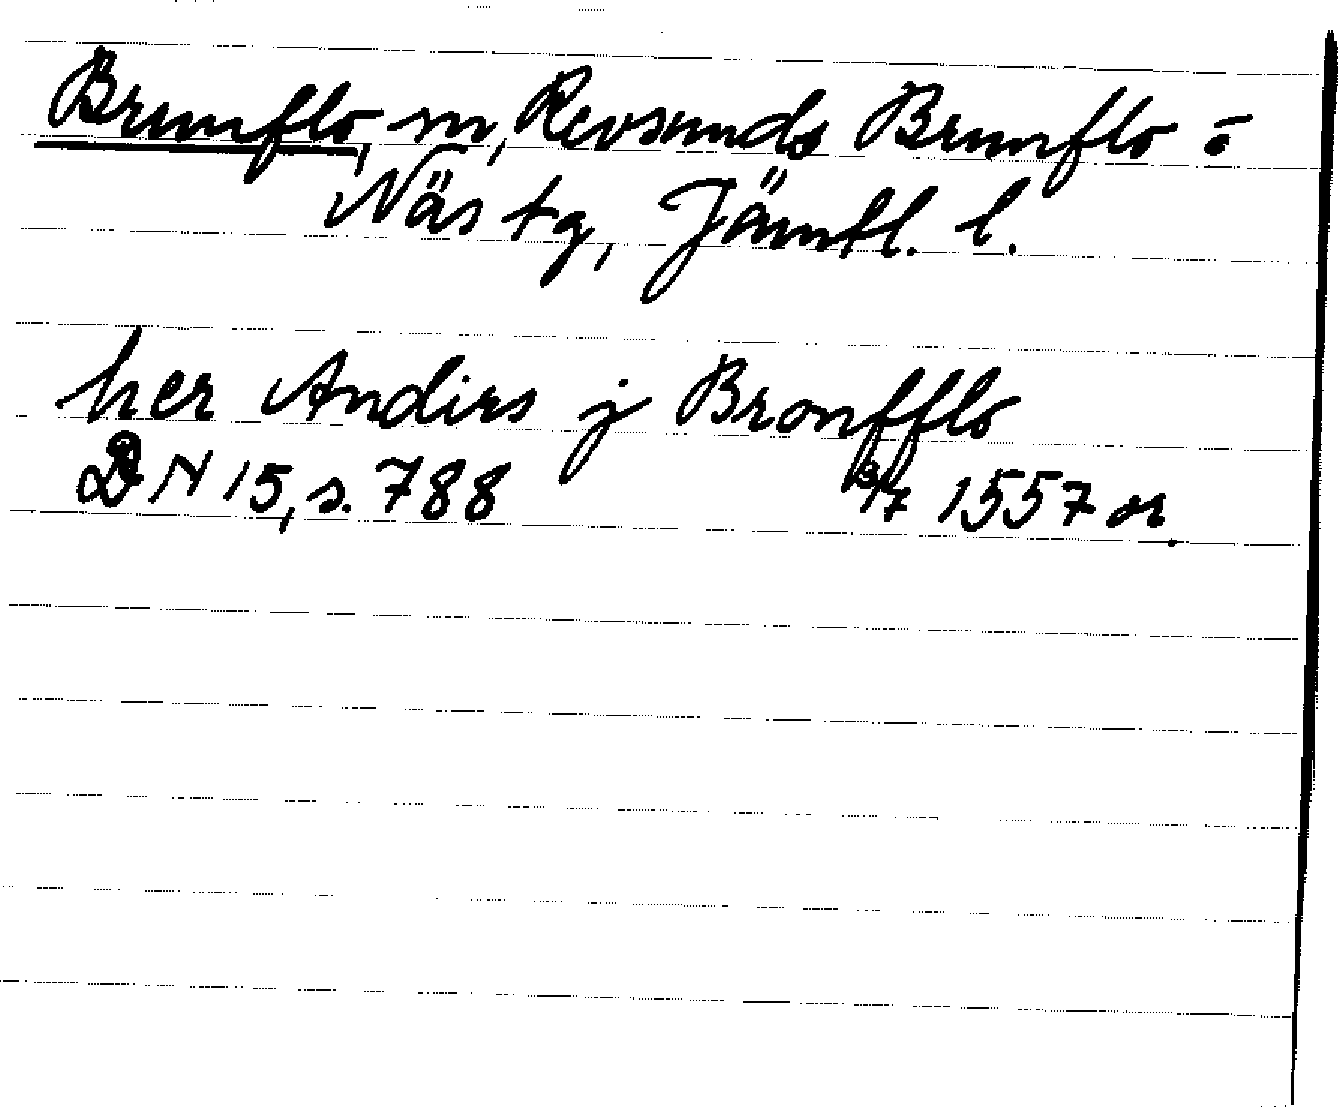 Brunflo, sn, Revsunds Brunflo o
Näs tg, Jämtl. l.
her Andirs j Bronfflo
DN 15, s. 788 3/7 1557 or.